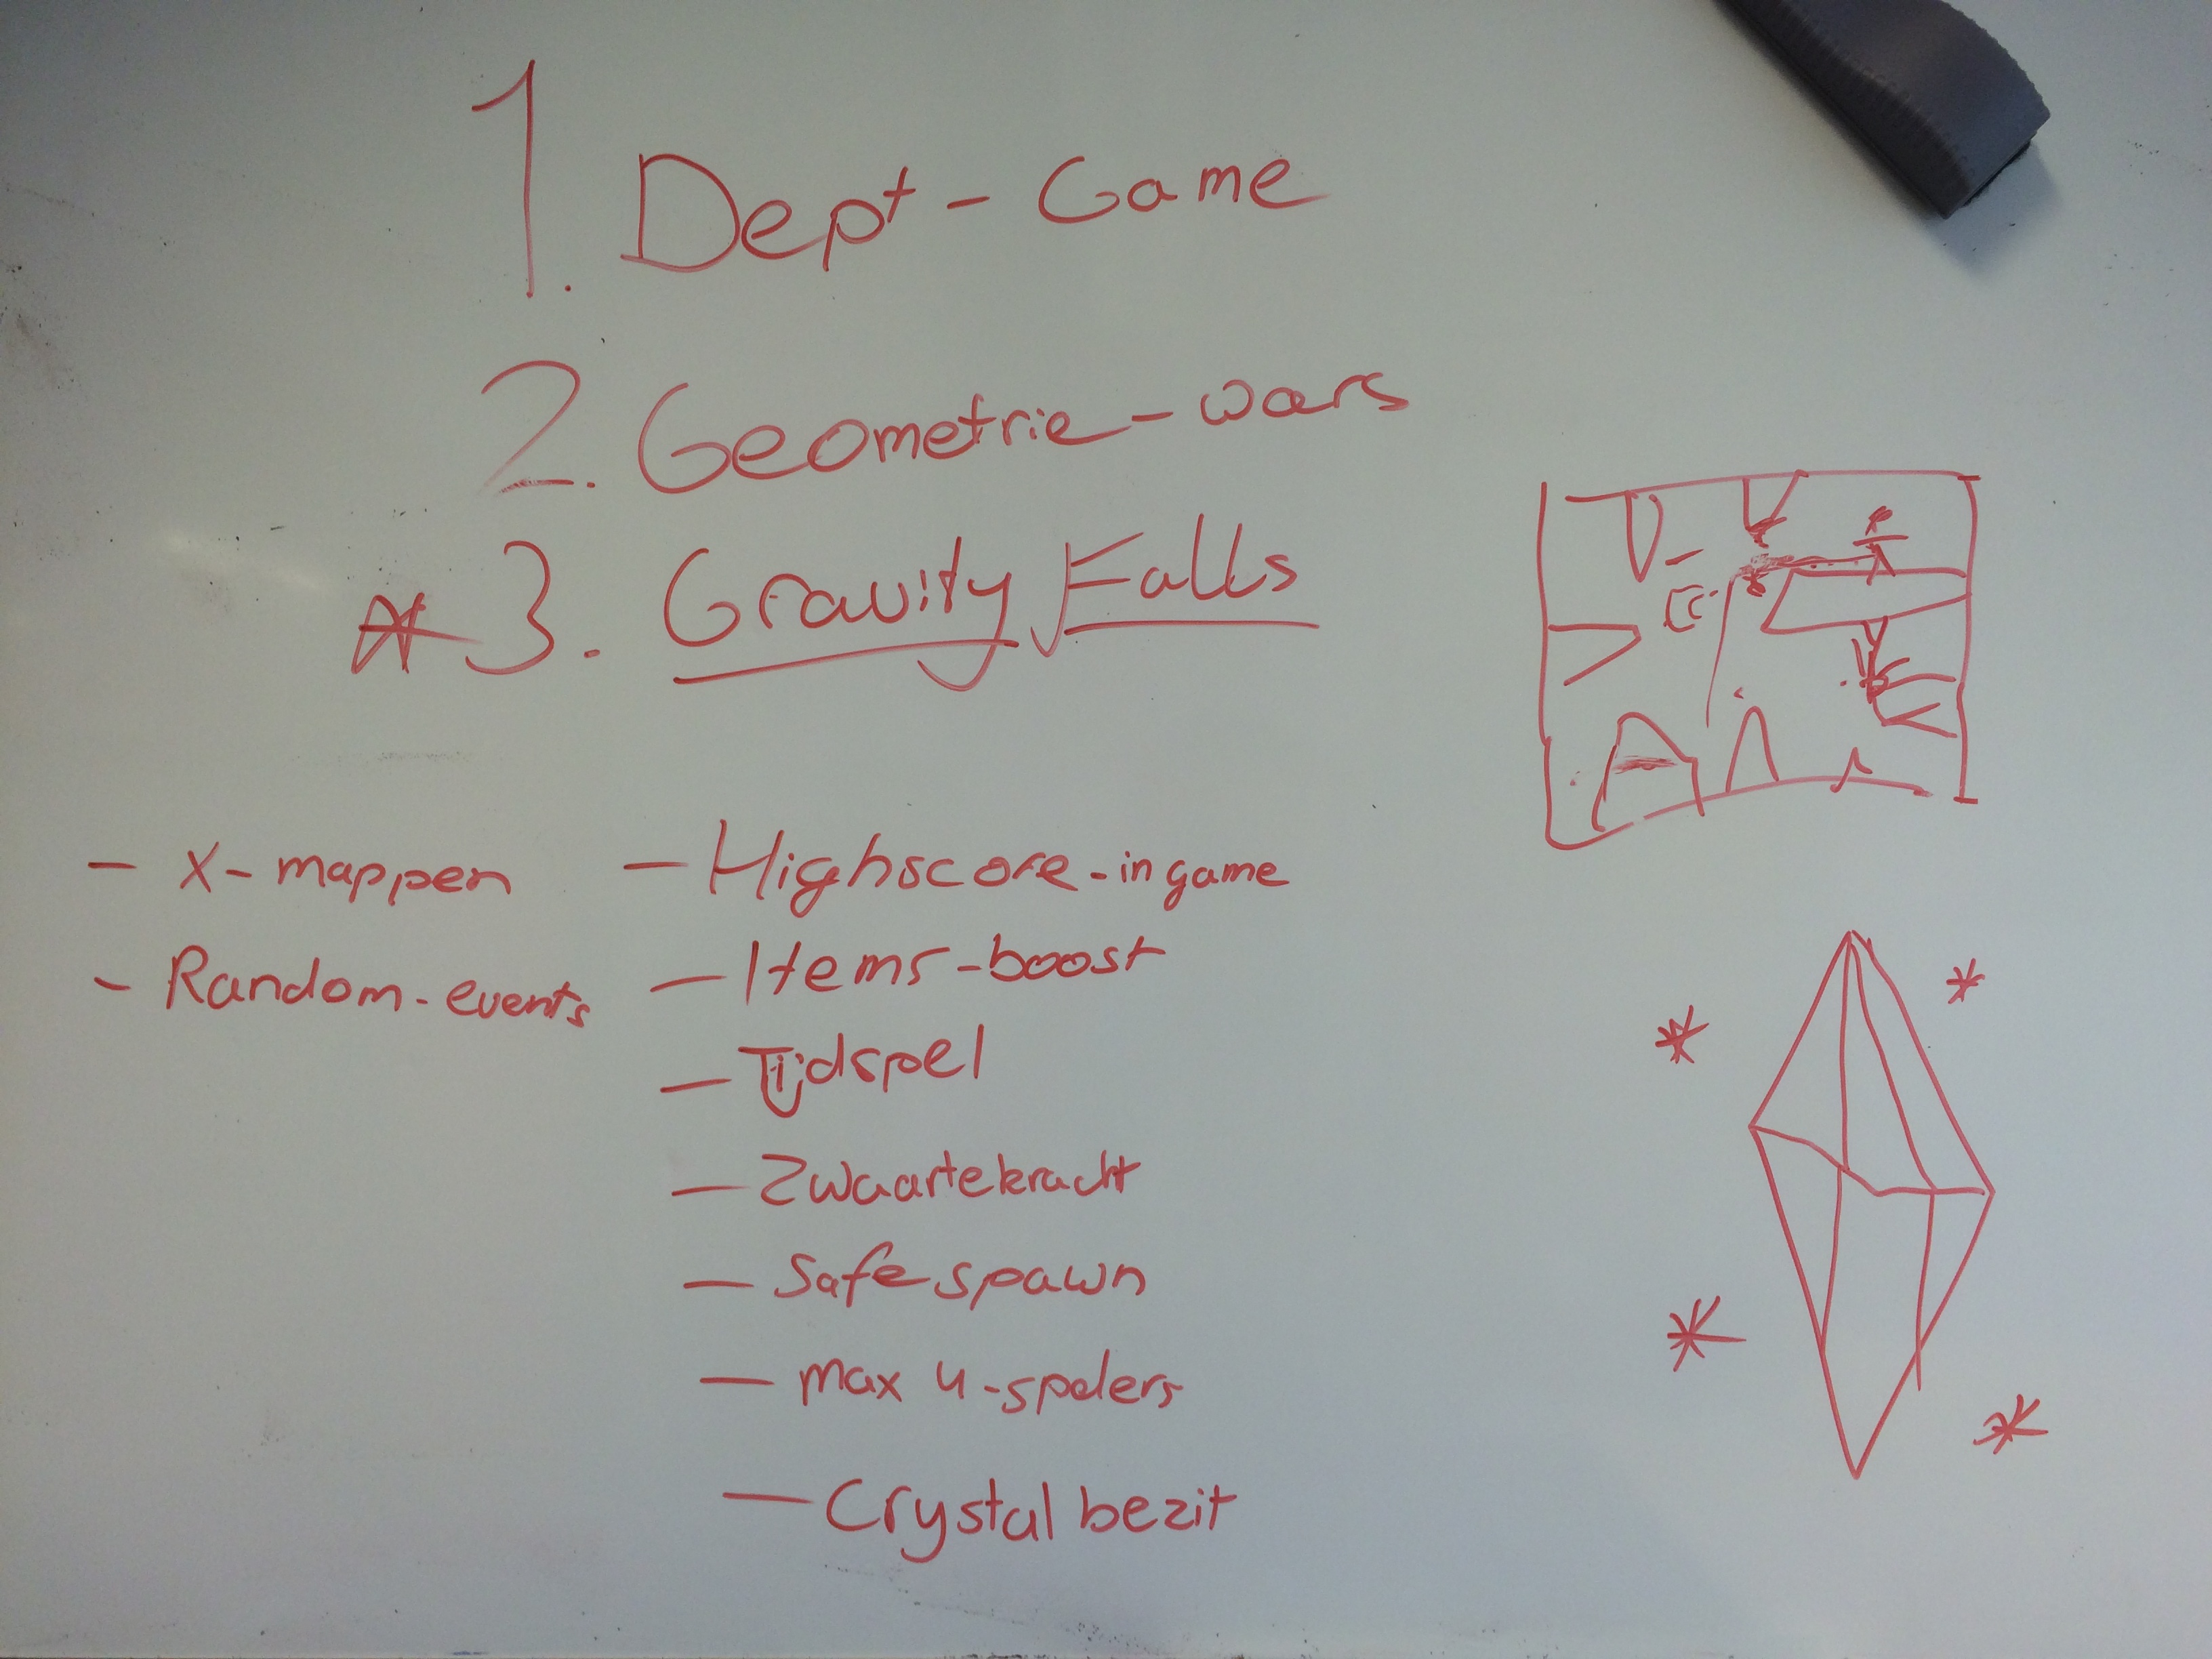 1. Dept - Game
2. Geometrie - wars
3. Gravity Falls
- X - mappen
- Random - events
- Highscore - in game
- Items - boost
- Tijdspel
- Zwaartekracht
- Safe spawn
- max 4 - spelers
- Crystal bezit